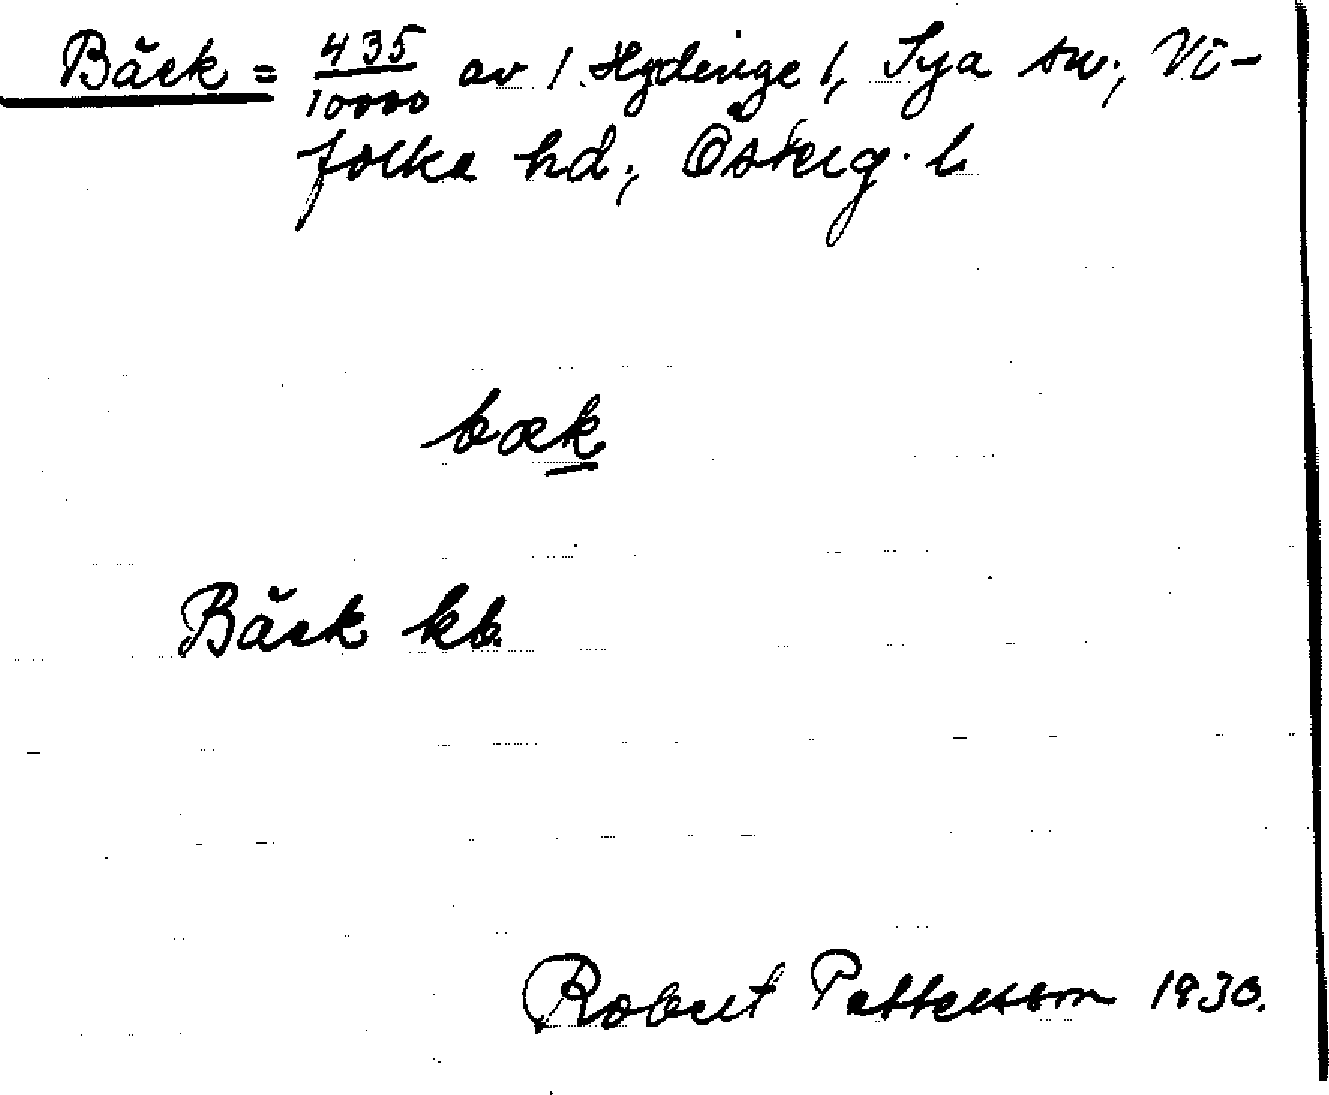 Bäck = 435/10000 av 1 Hydinge 1, Sya sn; Vi-
folka hd; Österg. l.
bæk
Bäck kb.
Robert Pettersson 1930.